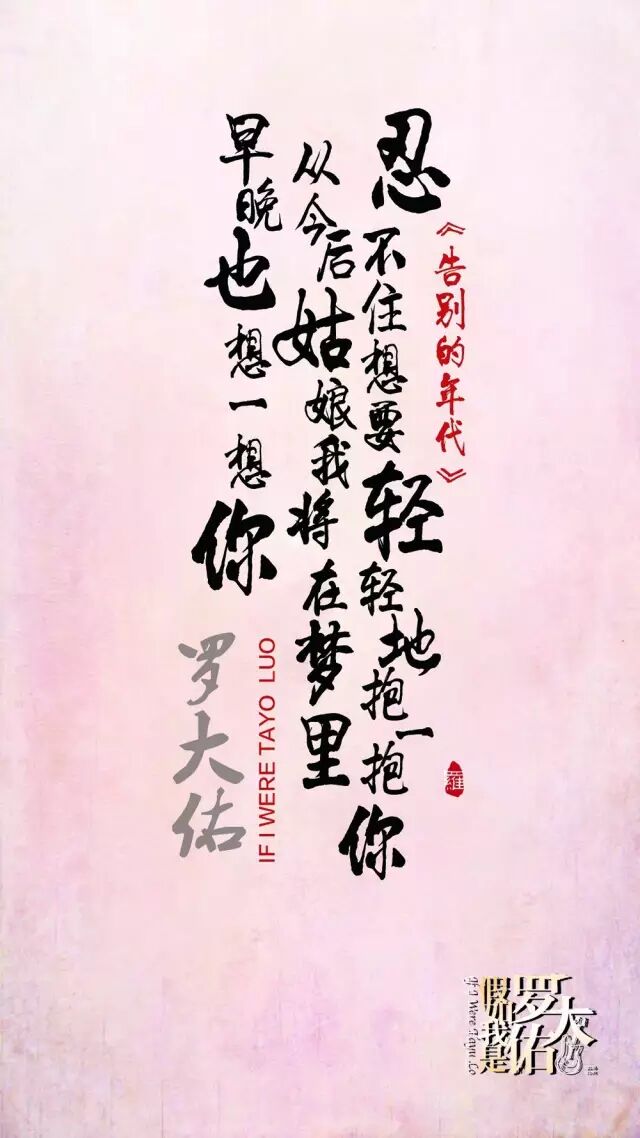 《告别的年代》
忍不住想要轻轻地抱一抱你
从今后姑娘我将在梦里
早晚也想一想你
罗大佑
IF I WERE TAYO LUO
羅
假如我是罗大佑